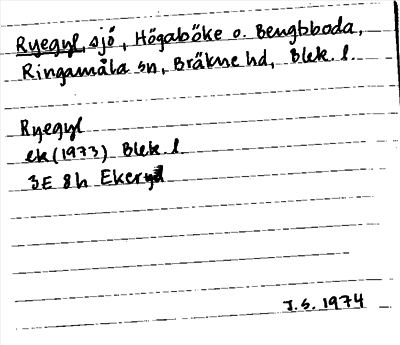 Ryegyl, sjö, Högaböke o. Bengtsboda,
Ringamåla sn, Bräkne hd, Blek. l.
Ryegyl
ek (1973) Blek. l.
3E 8h Ekeryd
J.S. 1974